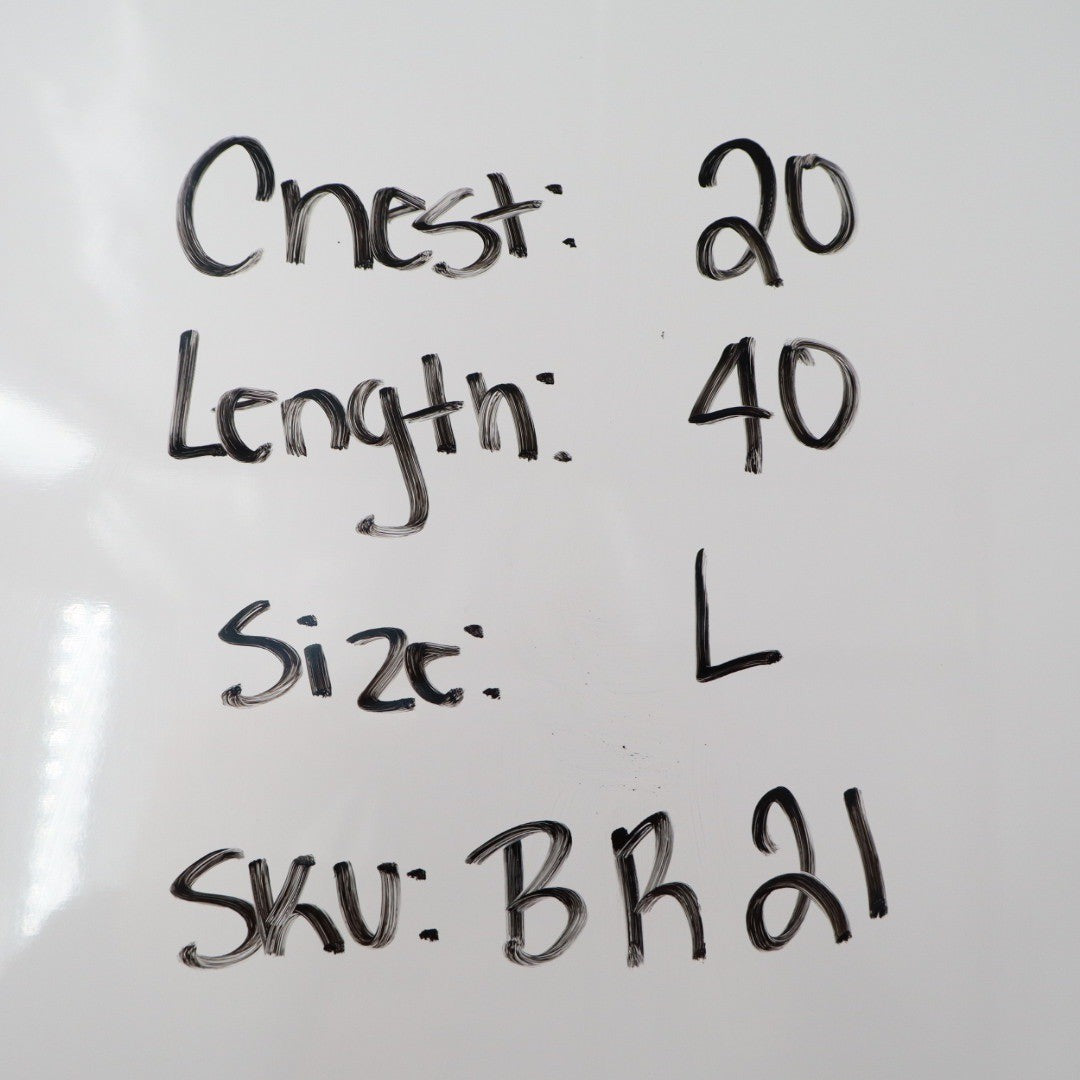 Chest: 20
Length: 40
Size: L
SKU: BR21